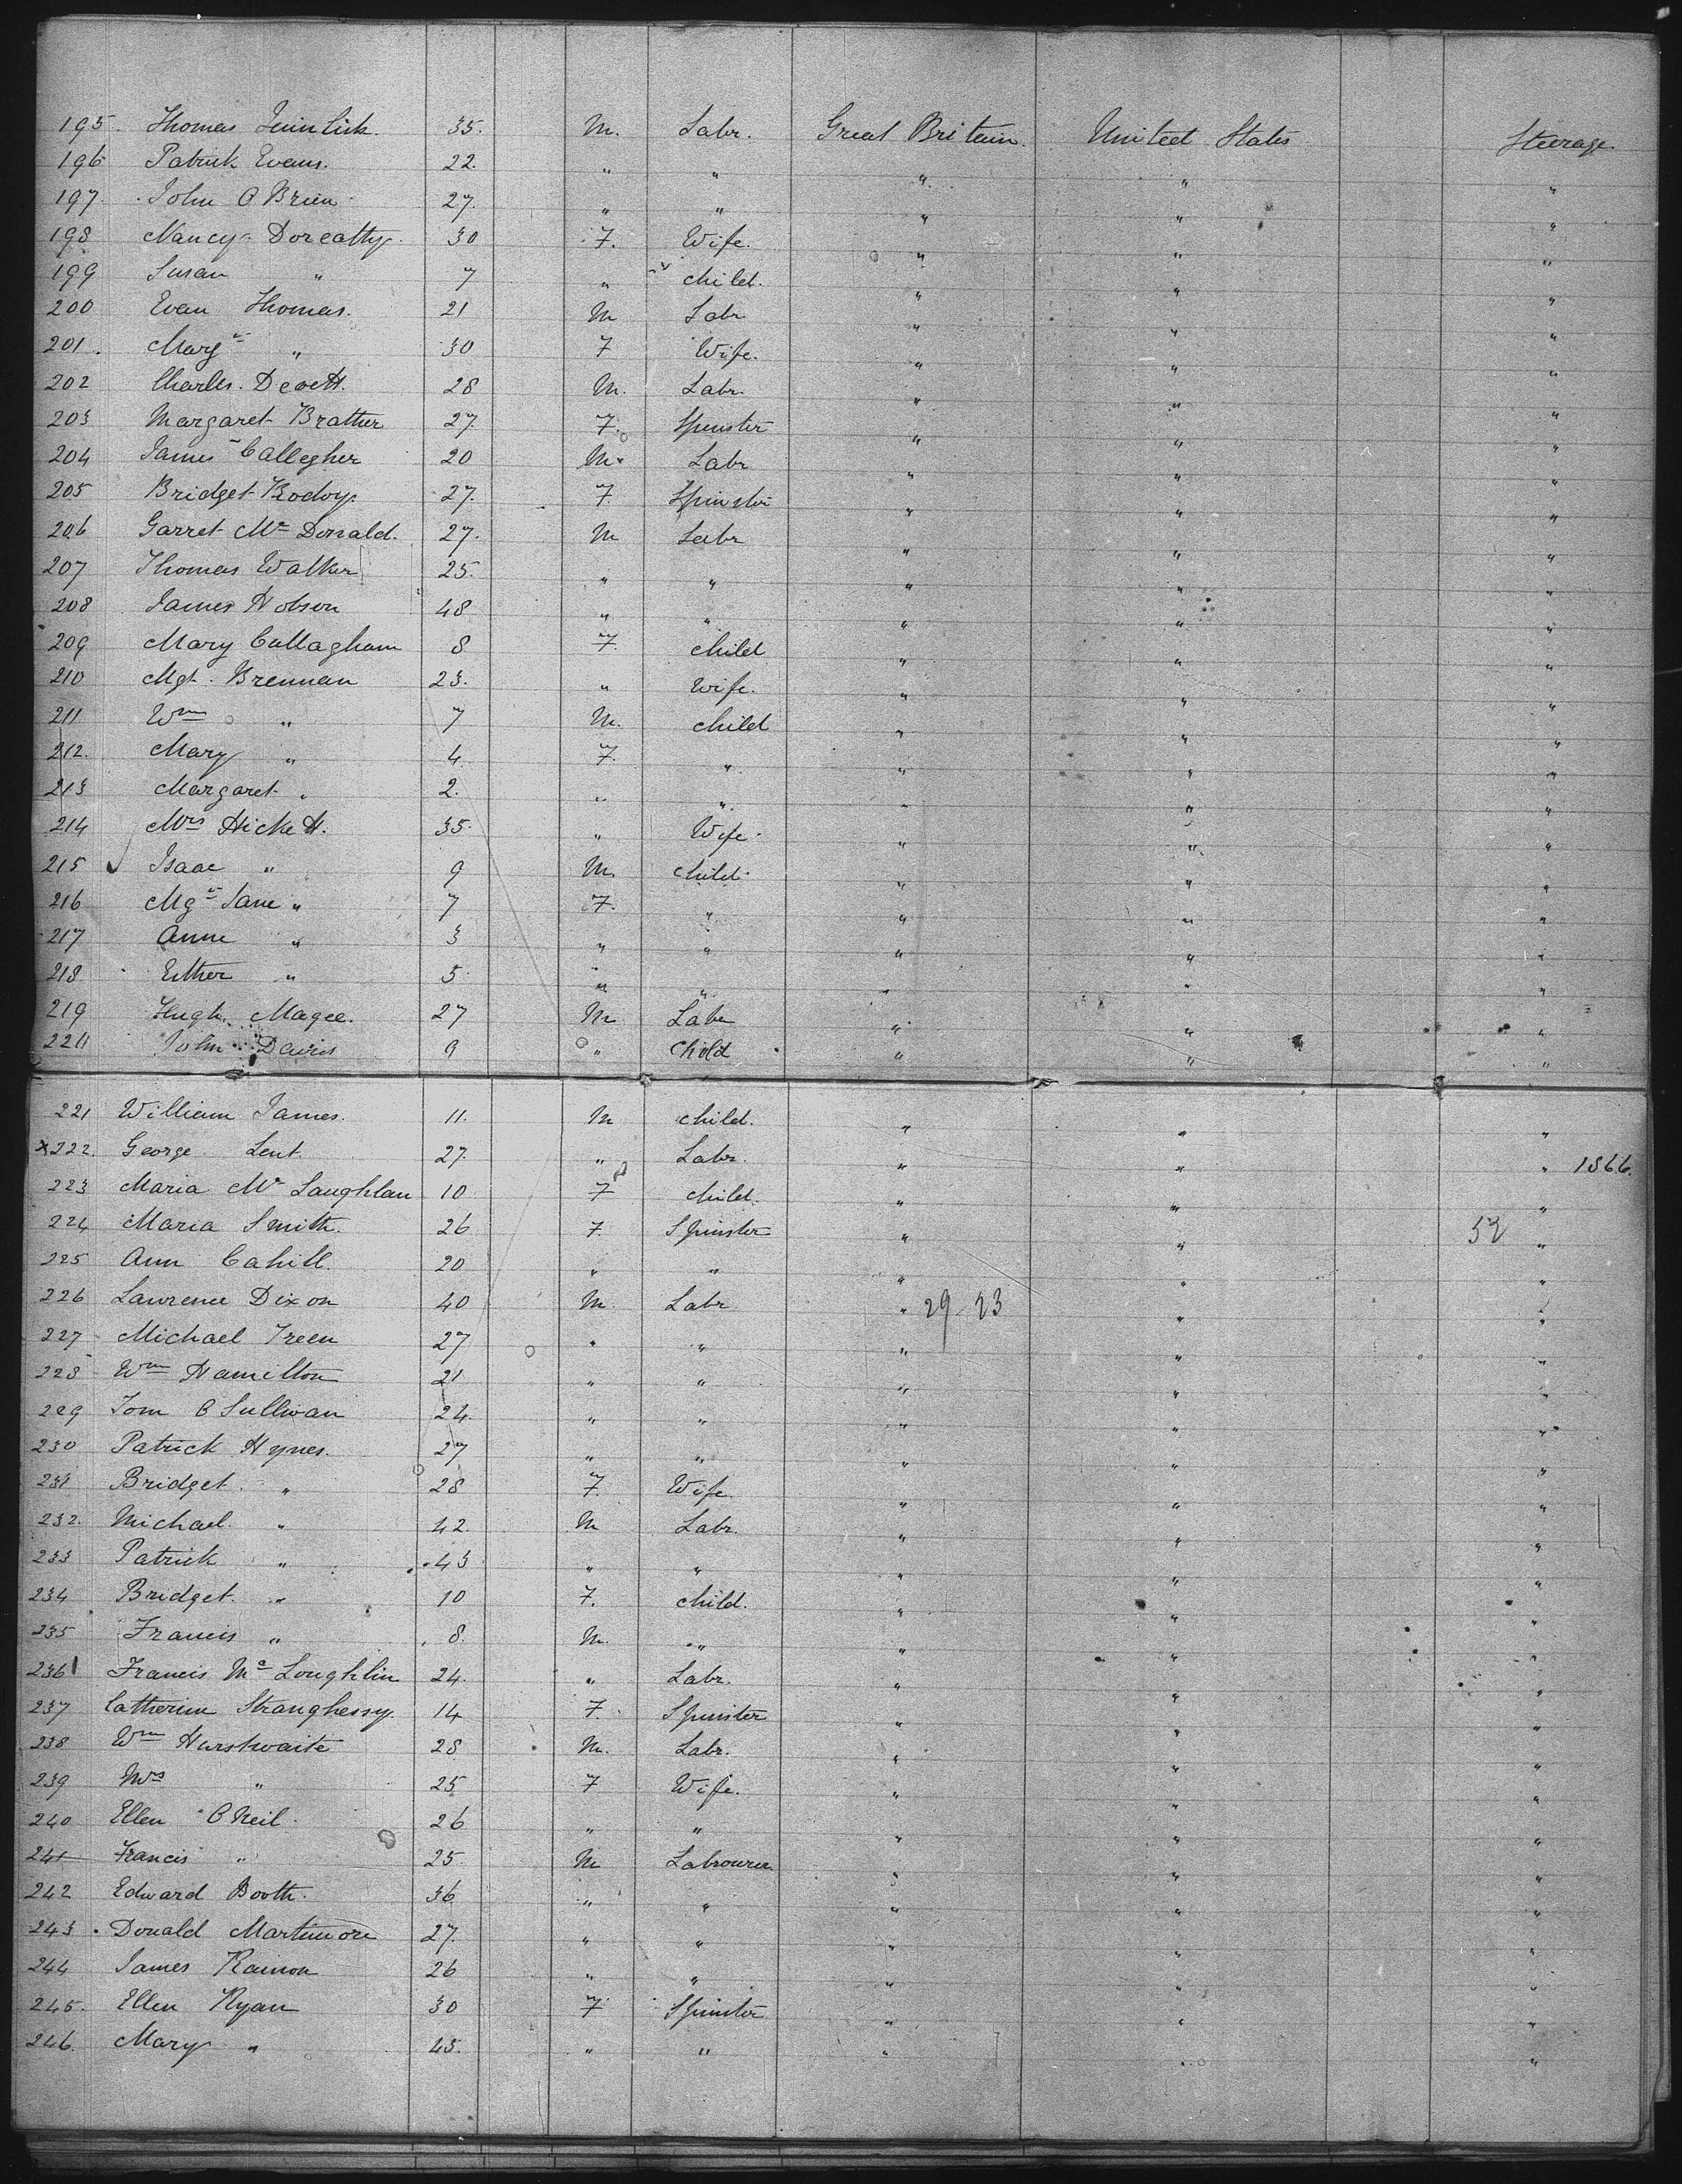 195. Thomas 35. M. Labr. Great Britain. United States Steerage
196 Patrick Evans. 22. " " " " "
197 John O Brien 27. " " " " "
198 Nancy Doreatty. 30 F. Wife. " " "
199 Susan " 7 " child. " " "
200 Evan Thomas. 21 M Labr " " "
201. Margt " 30 F Wife. " " "
202 Charles. Devett. 28 M. Labr. " " "
203 Margaret Brather 27. F. Spinster " " "
204 James Callegher 20 M. Labr " " "
205 Bridget Bodoy. 27. F. Spinster " " "
206 Garret Mc Donald. 27. M Labr " " "
207 Thomas Walker 25. " " " " "
208 James Hobson 48 " " " " "
209 Mary Callagham 8 F. child " " "
210 Mgt. Brennan 23. " Wife. " " "
211 Wm " 7 M. child " " "
212. Mary " 4. F. " " " "
213 Margaret " 2. " " " " "
214 Mrs Hickett. 35. " Wife. " " "
215 Isaac " 9 M. child. " " "
216 Mgt Jane " 7 F. " " " "
217 Anne " 3 " " " " "
218 Esther " 5 " " " " "
219 Hugh Magee. 27 M Labr " " "
220 John Davis 9 " Child " " "
221 William James. 11. M child. " " "
x222. George Lent. 27. " Labr. " " " 1866.
223 Maria Mc Laughlan 10 F child. " " "
224 Maria Smith. 26 F. Spinster " " 52 "
225 Ann Cahill. 20 " " " " "
226 Lawrence Dixon 40 M. Labr " 29 23 " "
227 Michael Treen 27 " " " " "
228 Wm Hamilton 21 " " " " "
229 Tom O Sullivan 24. " " " " "
230 Patrick Hynes. 27 " " " " "
231 Bridget. " 28 F. Wife. " " "
232. Michael. " 42. M Labr. " " "
233 Patrick " 43 " " " " "
234 Bridget. " 10 F. child. " " "
235 Francis " 8. M. " " " "
236 Francis Mc Loughlin 24. " Labr. " " "
237 Catherine Straughessy. 14 F. Spinster " " "
238 Wm Hurstwaite 28 M. Labr. " " "
239 Mrs " 25 F Wife. " " "
240 Ellen O Neil. 26 " " " " "
241 Francis " 25. M Labourer " " "
242 Edward Booth. 36 " " " " "
243. Donald Martimore 27. " " " " "
244 James Rainon 26 " " " " "
245. Ellen Ryan 30 F Spinster " " "
246. Mary " 45. " " " " "